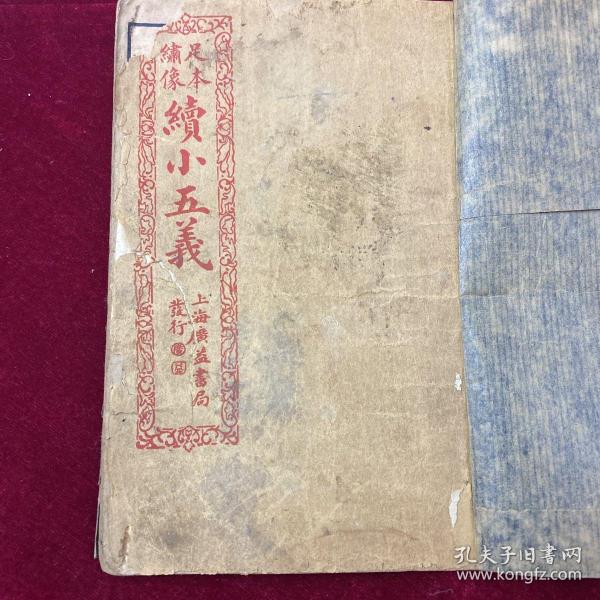 足本
繡像
續小五義
上海廣益書局
發行
孔夫子旧書网
www.kongfz.com